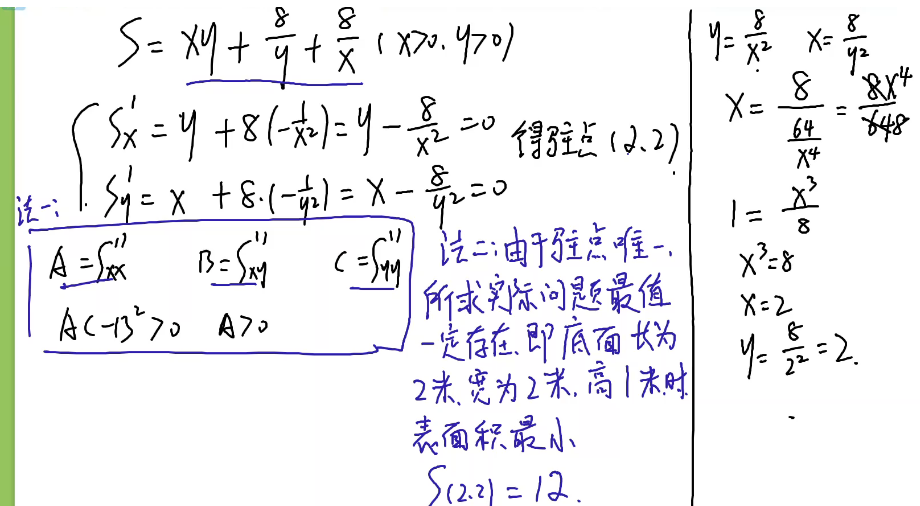 S = xy + 8/y + 8/x (x>0. y>0)
S'x = y + 8(-1/x²) = y - 8/x² = 0
S'y = x + 8·(-1/y²) = x - 8/y² = 0
得驻点 (2.2)
法一:
A = S''xx B = S''xy C = S''yy
AC-B²>0 A>0
法二:由于驻点唯一、
所求实际问题最值
一定存在、即底面长为
2米、宽为2米、高1米时
表面积最小
S(2.2) = 12.
y = 8/x² x = 8/y²
x = 8/(64/x⁴) = 8x⁴/648
1 = x³/8
x³=8
x=2
y = 8/2² = 2.